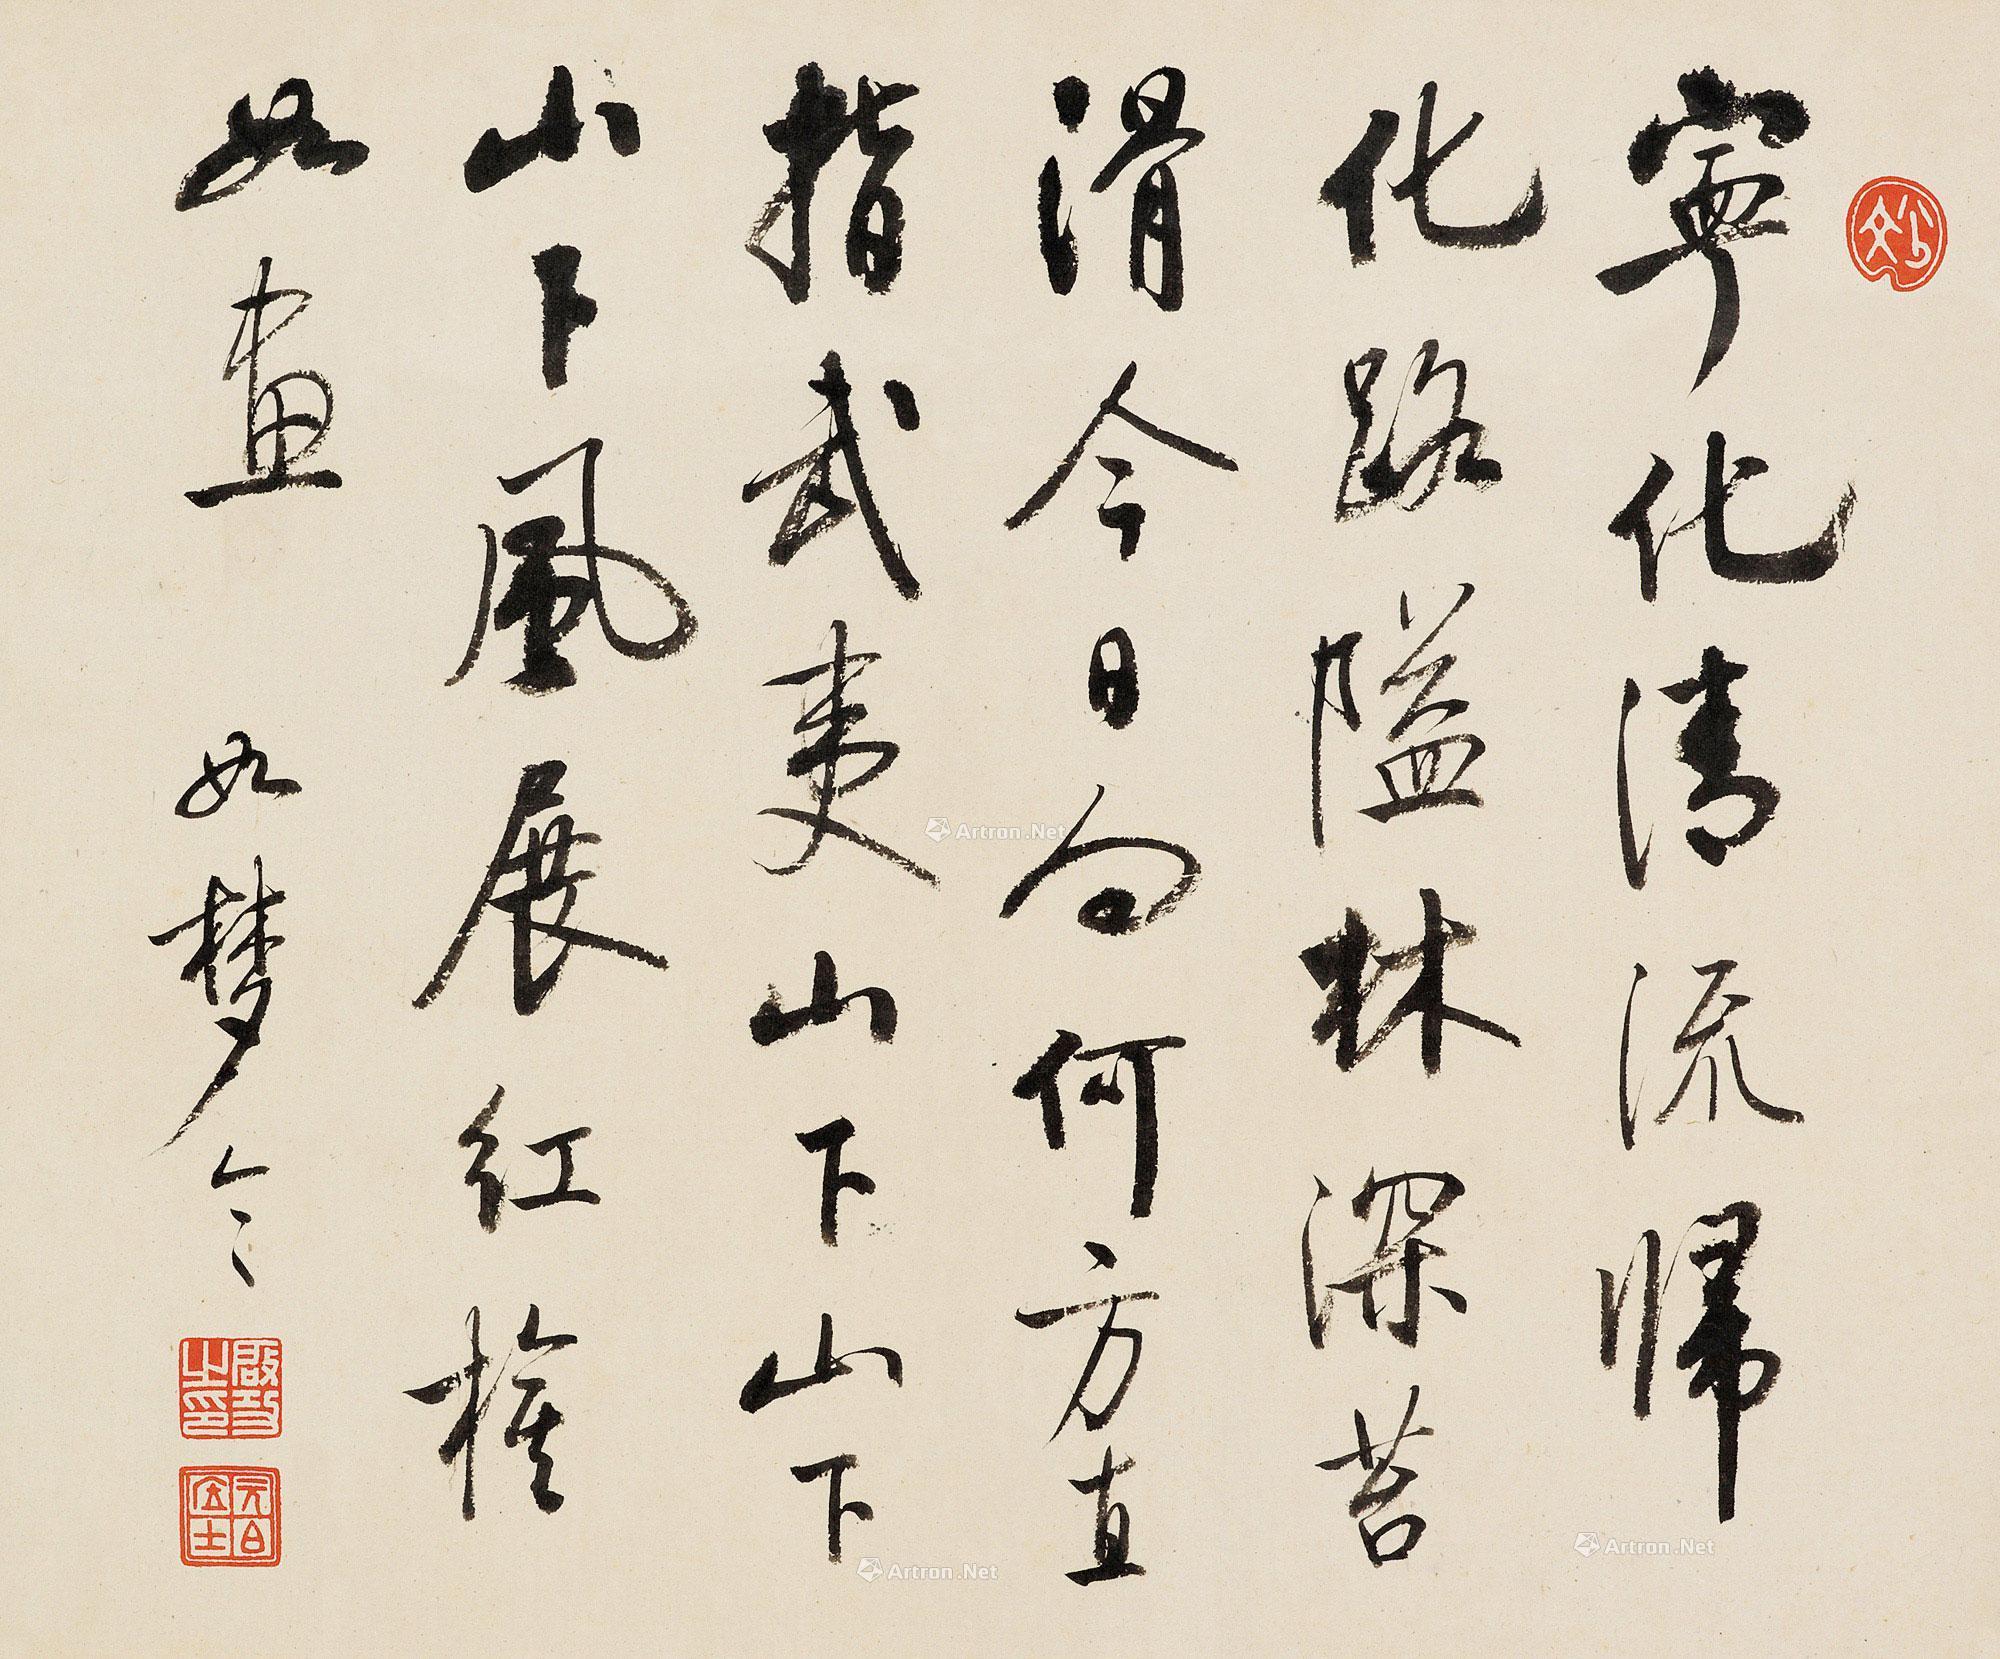 寧化清流歸
化路隘林深苔
滑今日向何方直
指武夷山下山下
山下風展紅旗
如畫 如夢令
啟功之印
Artron.Net
Artron.Net
Artron.Net